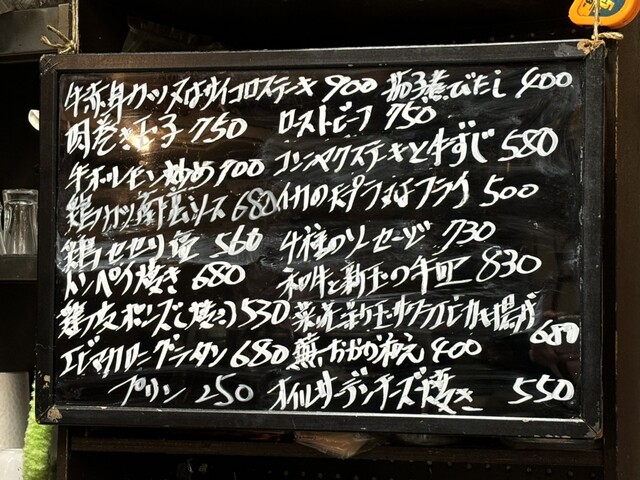 牛赤身カツ又はサイコロステーキ 900 茄子煮びたし 400
肉巻き玉子 750 ローストビーフ 750
牛ホルモン炒め 900 コンニャクステーキと牛すじ 580
鶏ムネカツ 680 イカの天プラ又はフライ 500
鶏セセリ 560 4種のソーセージ 730
トンペイ焼き 680 和牛と新玉の牛皿 830
鶏皮ポンズ(焼き) 530 菜花新玉サクラエビかき揚げ 680
エビマカロニグラタン 680 おかか和え 400
プリン 250 オイルサーディンチーズ焼き 550